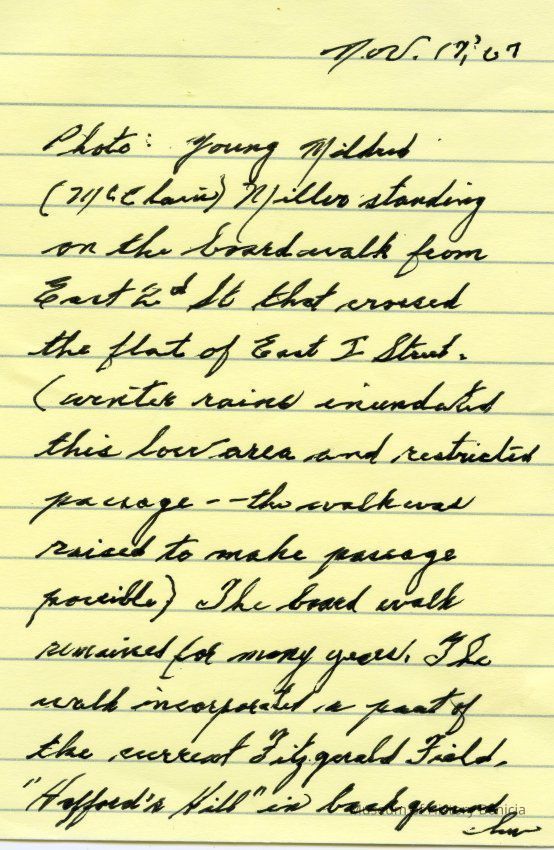 Nov. 17, '07
Photo: Young Mildred
(McClain) Miller standing
on the boardwalk from
East 2d St that crossed
the flat of East I Street.
(winter rains inundated
this low area and restricted
passage -- the walk was
raised to make passage
possible) The board walk
remained for many years. The
walk incorporated a part of
the current Fitzgerald Field.
"Hofford's Hill" in background